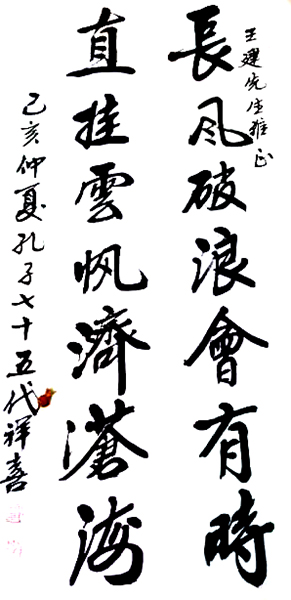 王建先生雅正
長风破浪會有時
直挂雲帆濟滄海
己亥仲夏孔子七十五代祥喜